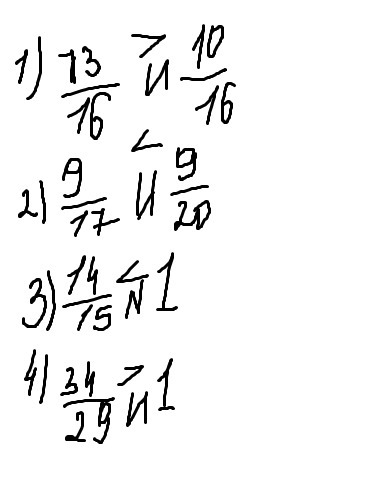 1) 13/16 > и 10/16
2) 9/17 < и 9/20
3) 14/15 < и 1
4) 34/29 > и 1